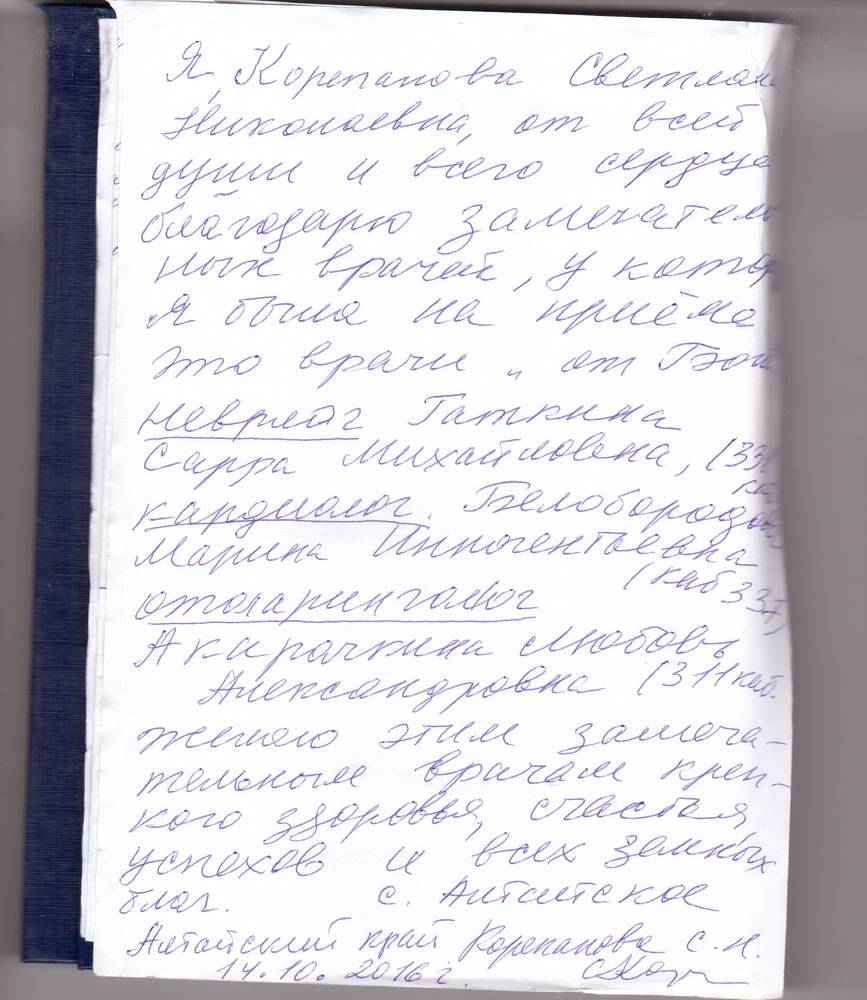 Я, Корепанова Светлана
Николаевна, от всей
души и всего сердца
благодарю замечатель
ных врачей, у котор
я была на приёме
это врачи „ от Бога
неврлог Гаткина
Сарра Михайловна, (338
каб.
кардиолог. Белобородова
Марина Иннокентьевна
(каб 337)
отоларинголог
Акарачкина Любовь
Александровна (311 каб.
желаю этим замеча-
тельным врачам креп-
кого здоровья, счастья
успехов и всех земных
благ. с. Алтайское
Алтайский край Корепанова С. Н.
14.10.2016 г.